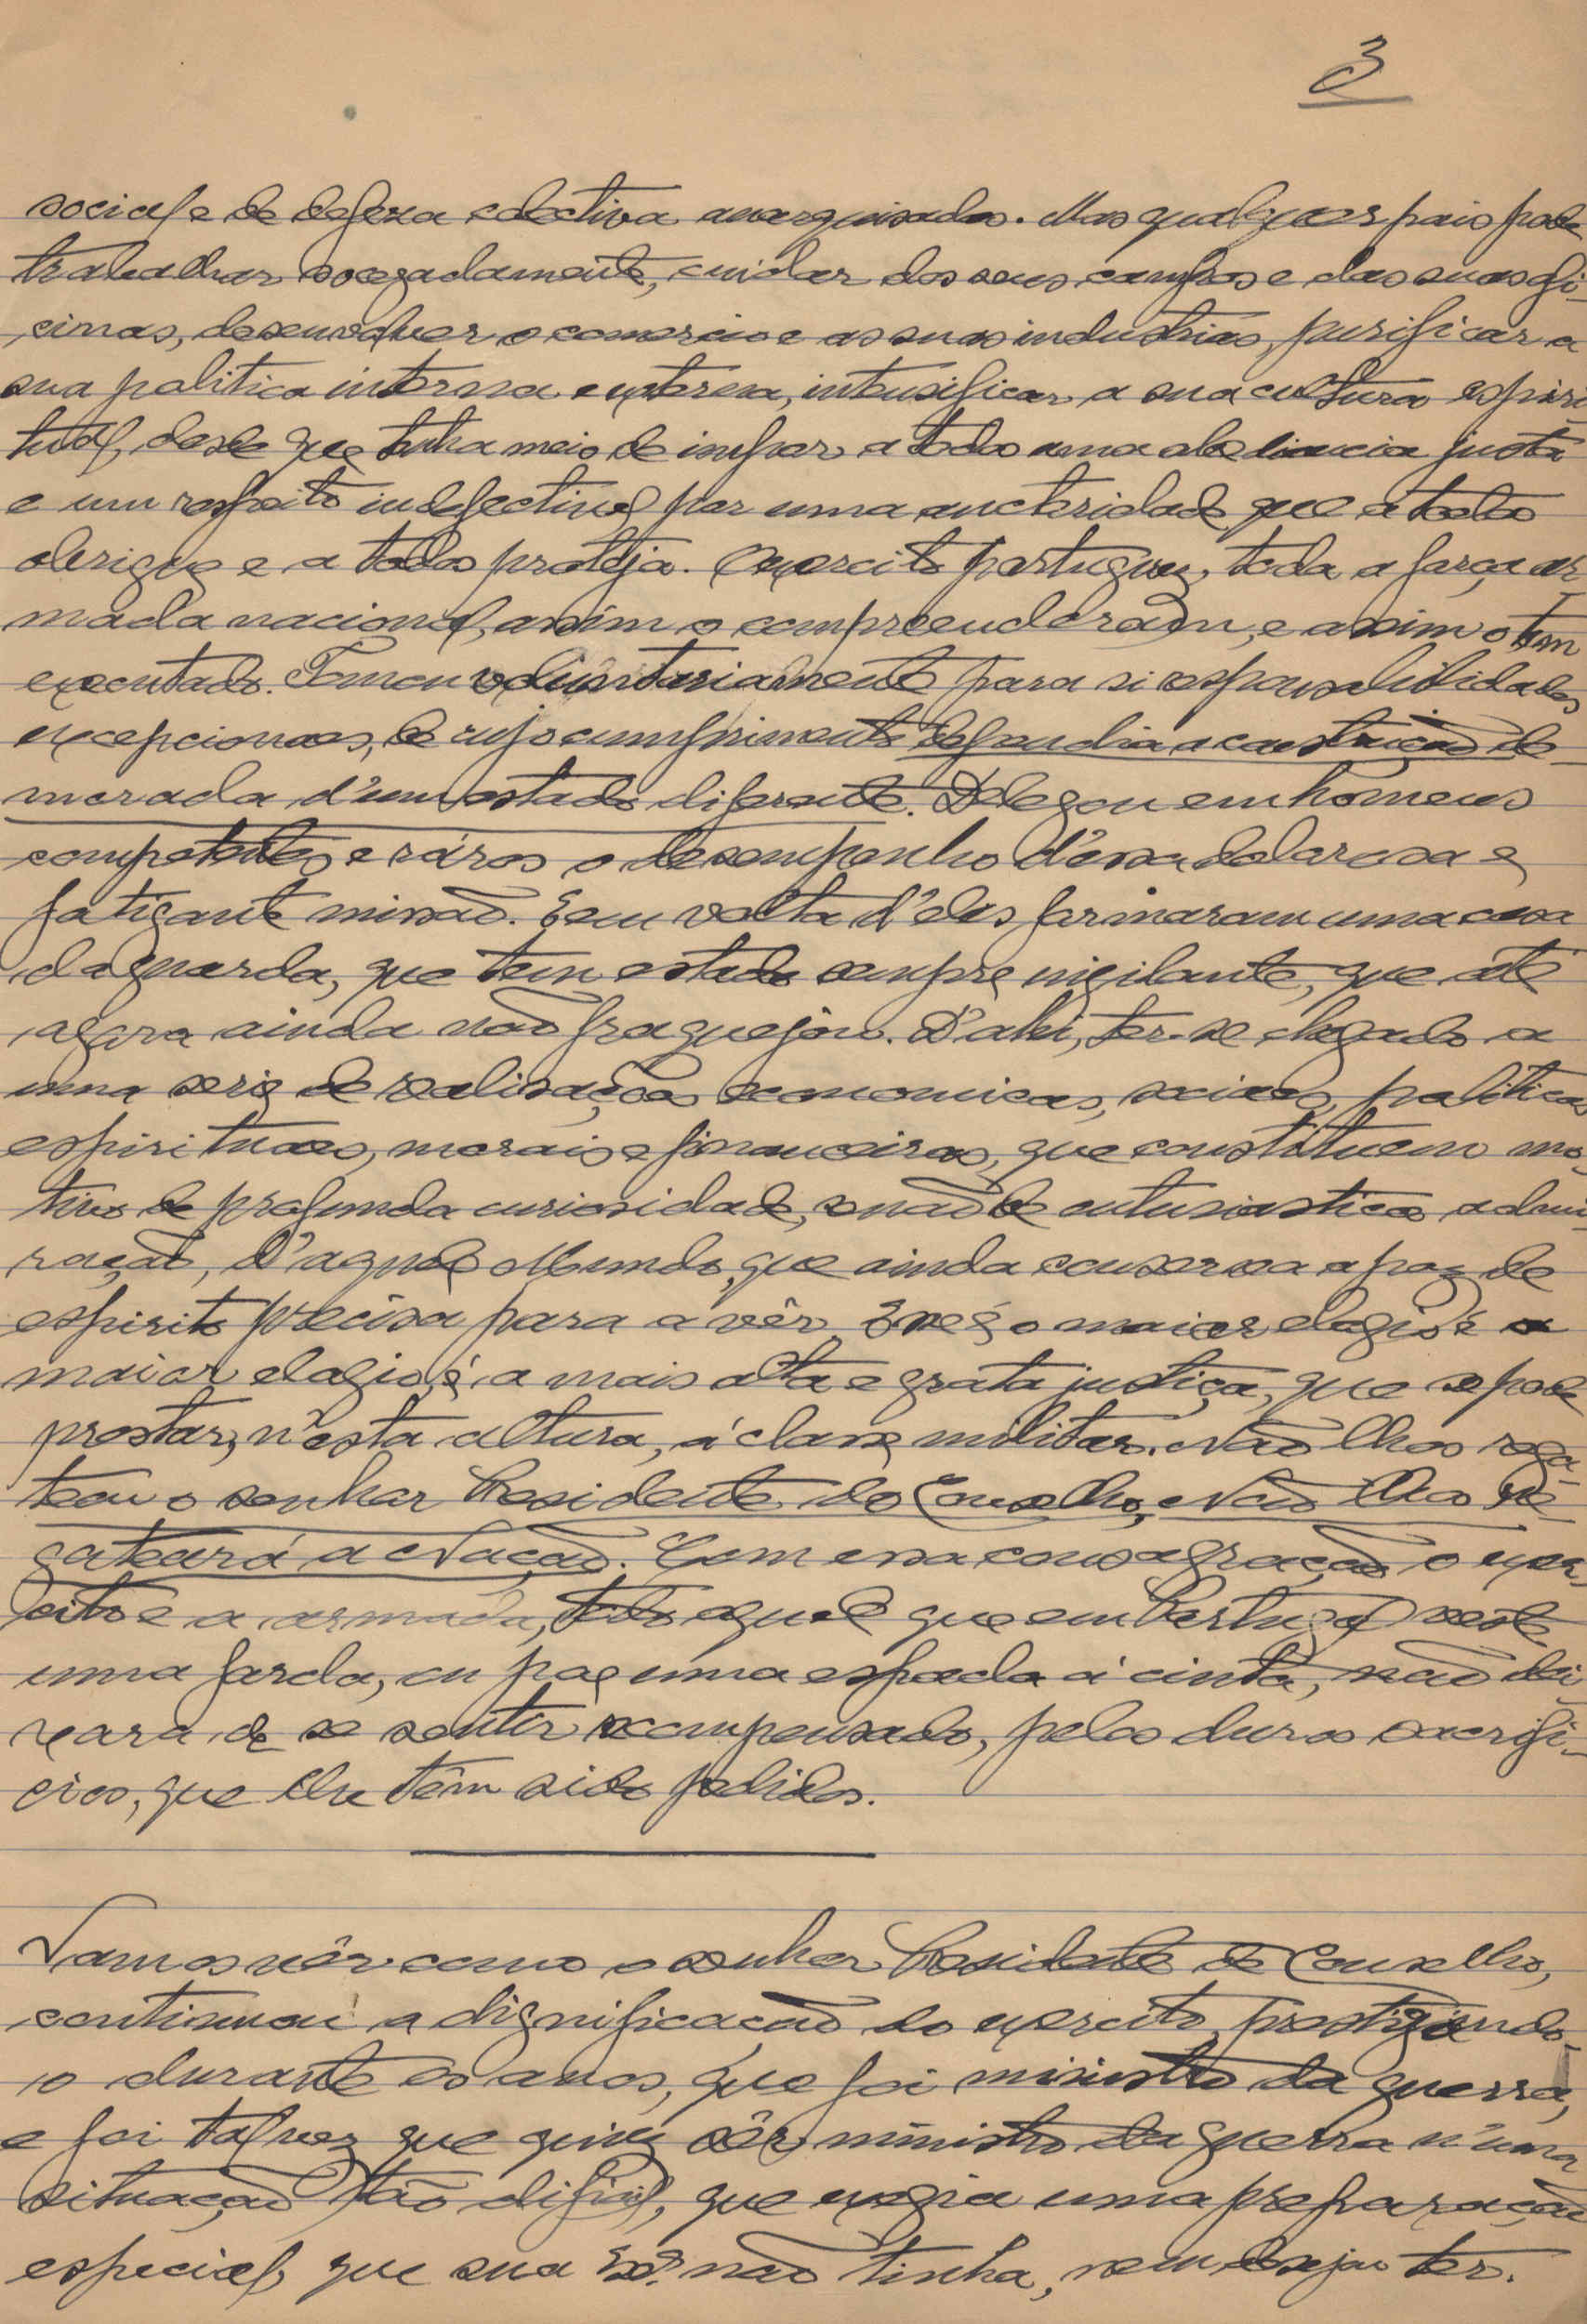 3
social e de defeza colectiva anarquisados. Mas qualquer pais pode
trabalhar socegadamente, cuidar dos seus campos e das suas ofi-
cinas, desenvolver o comercio e as suas industrias, purificar a
sua politica interna e externa, intensificar a sua cultura espiri-
tual, desde que tenha meio de impôr a todos uma obediencia justa
e um respeito indefectivel por uma auctoridade que a todos
obrigue e a todos proteja. O exercito portuguez, toda a força ar-
mada nacional, assim o compreenderam, e assim o tem
executado. Tomou voluntariamente para si responsabilidades
excepcionaes, de cujo cumprimento dependia a construção de-
morada d'um estado diferente. Delegou em homens
competentes e ráros o desempenho d'essa dolorosa e
fatigante missão. E em volta d'eles formaram uma casa
da guarda, que tem estado sempre vigilante, que até
agora ainda não fraquejou. D'ahi, ter-se chegado a
uma serie de realisações economicas, sociaes, politicas
espirituaes, moraes e financeiras, que constituem mo-
tivo de profunda curiosidade, senão de entusiastica admi-
ração, d'aquele Mundo, que ainda conserva a paz de
espirito precisa para a vêr. Esse é o maior elogio é o
maior elogio, é a mais alta e grata justiça, que se pode
prestar, n'esta altura, á classe militar. Não lhos rega-
teou o senhor Presidente do Conselho, Não lhos re-
gateará a Nação. Com essa consagração o exer-
cito e a armada, todo aquele que em Portugal veste
uma farda, ou põe uma espada á cinta, não dei-
xara de se sentir recompensado, pelos duros sacrifi-
cios, que lhe têm sido pedidos.
Vamos vêr como o senhor Presidente do Conselho,
continuou a dignificação do exercito, prestigiando-
-o durante os anos, que foi ministro da guerra,
e foi talvez que quiz sêr ministro da guerra n'uma
situação tão dificil, que exigia uma preparação
especial, que sua Exª. não tinha, nem desejou ter.